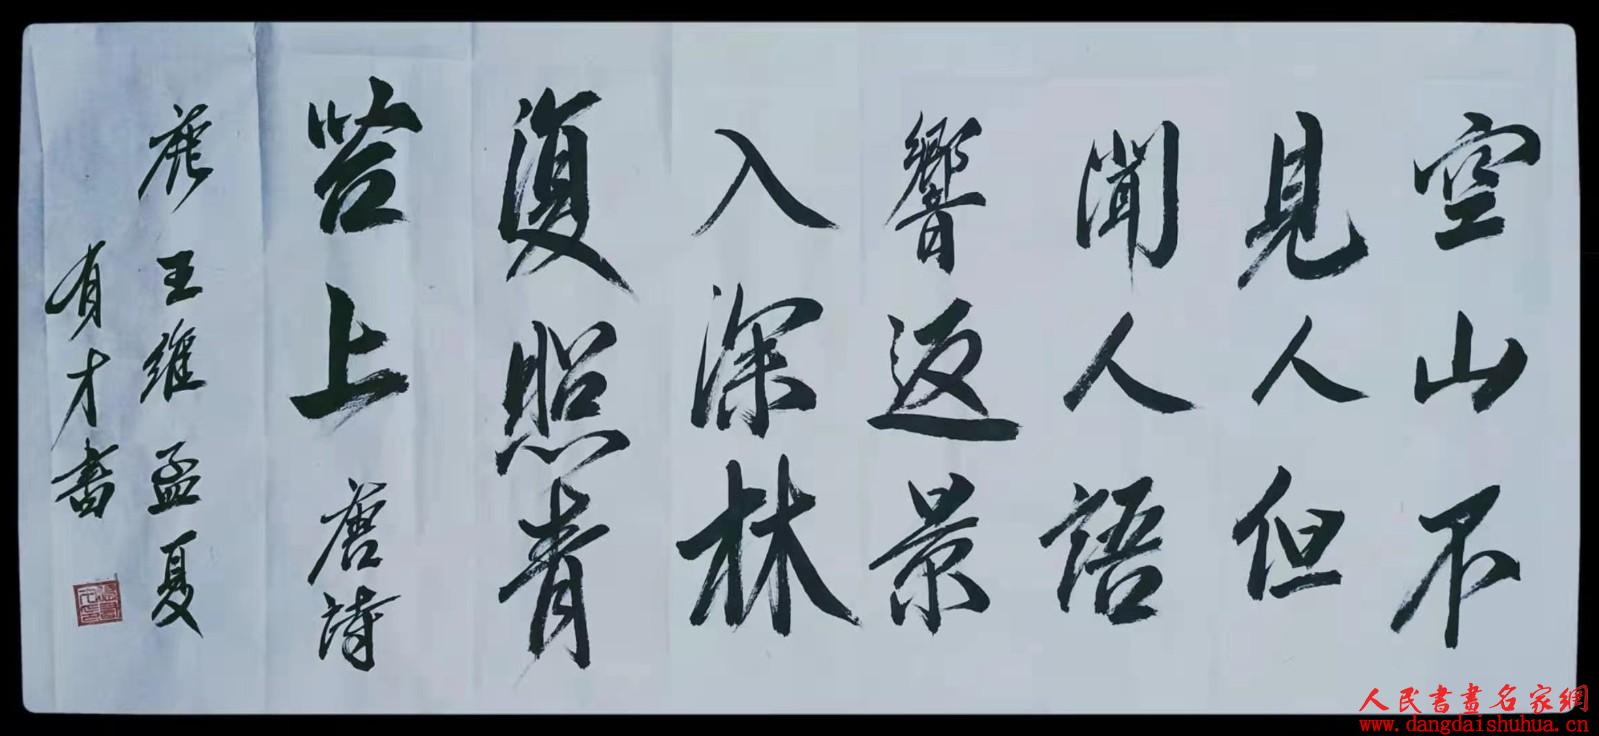 空山不
見人但
聞人語
響返景
入深林
復照青
苔上
唐詩
鹿王維孟夏
有才書
人民書畫名家網
www.dangdaishuhua.cn